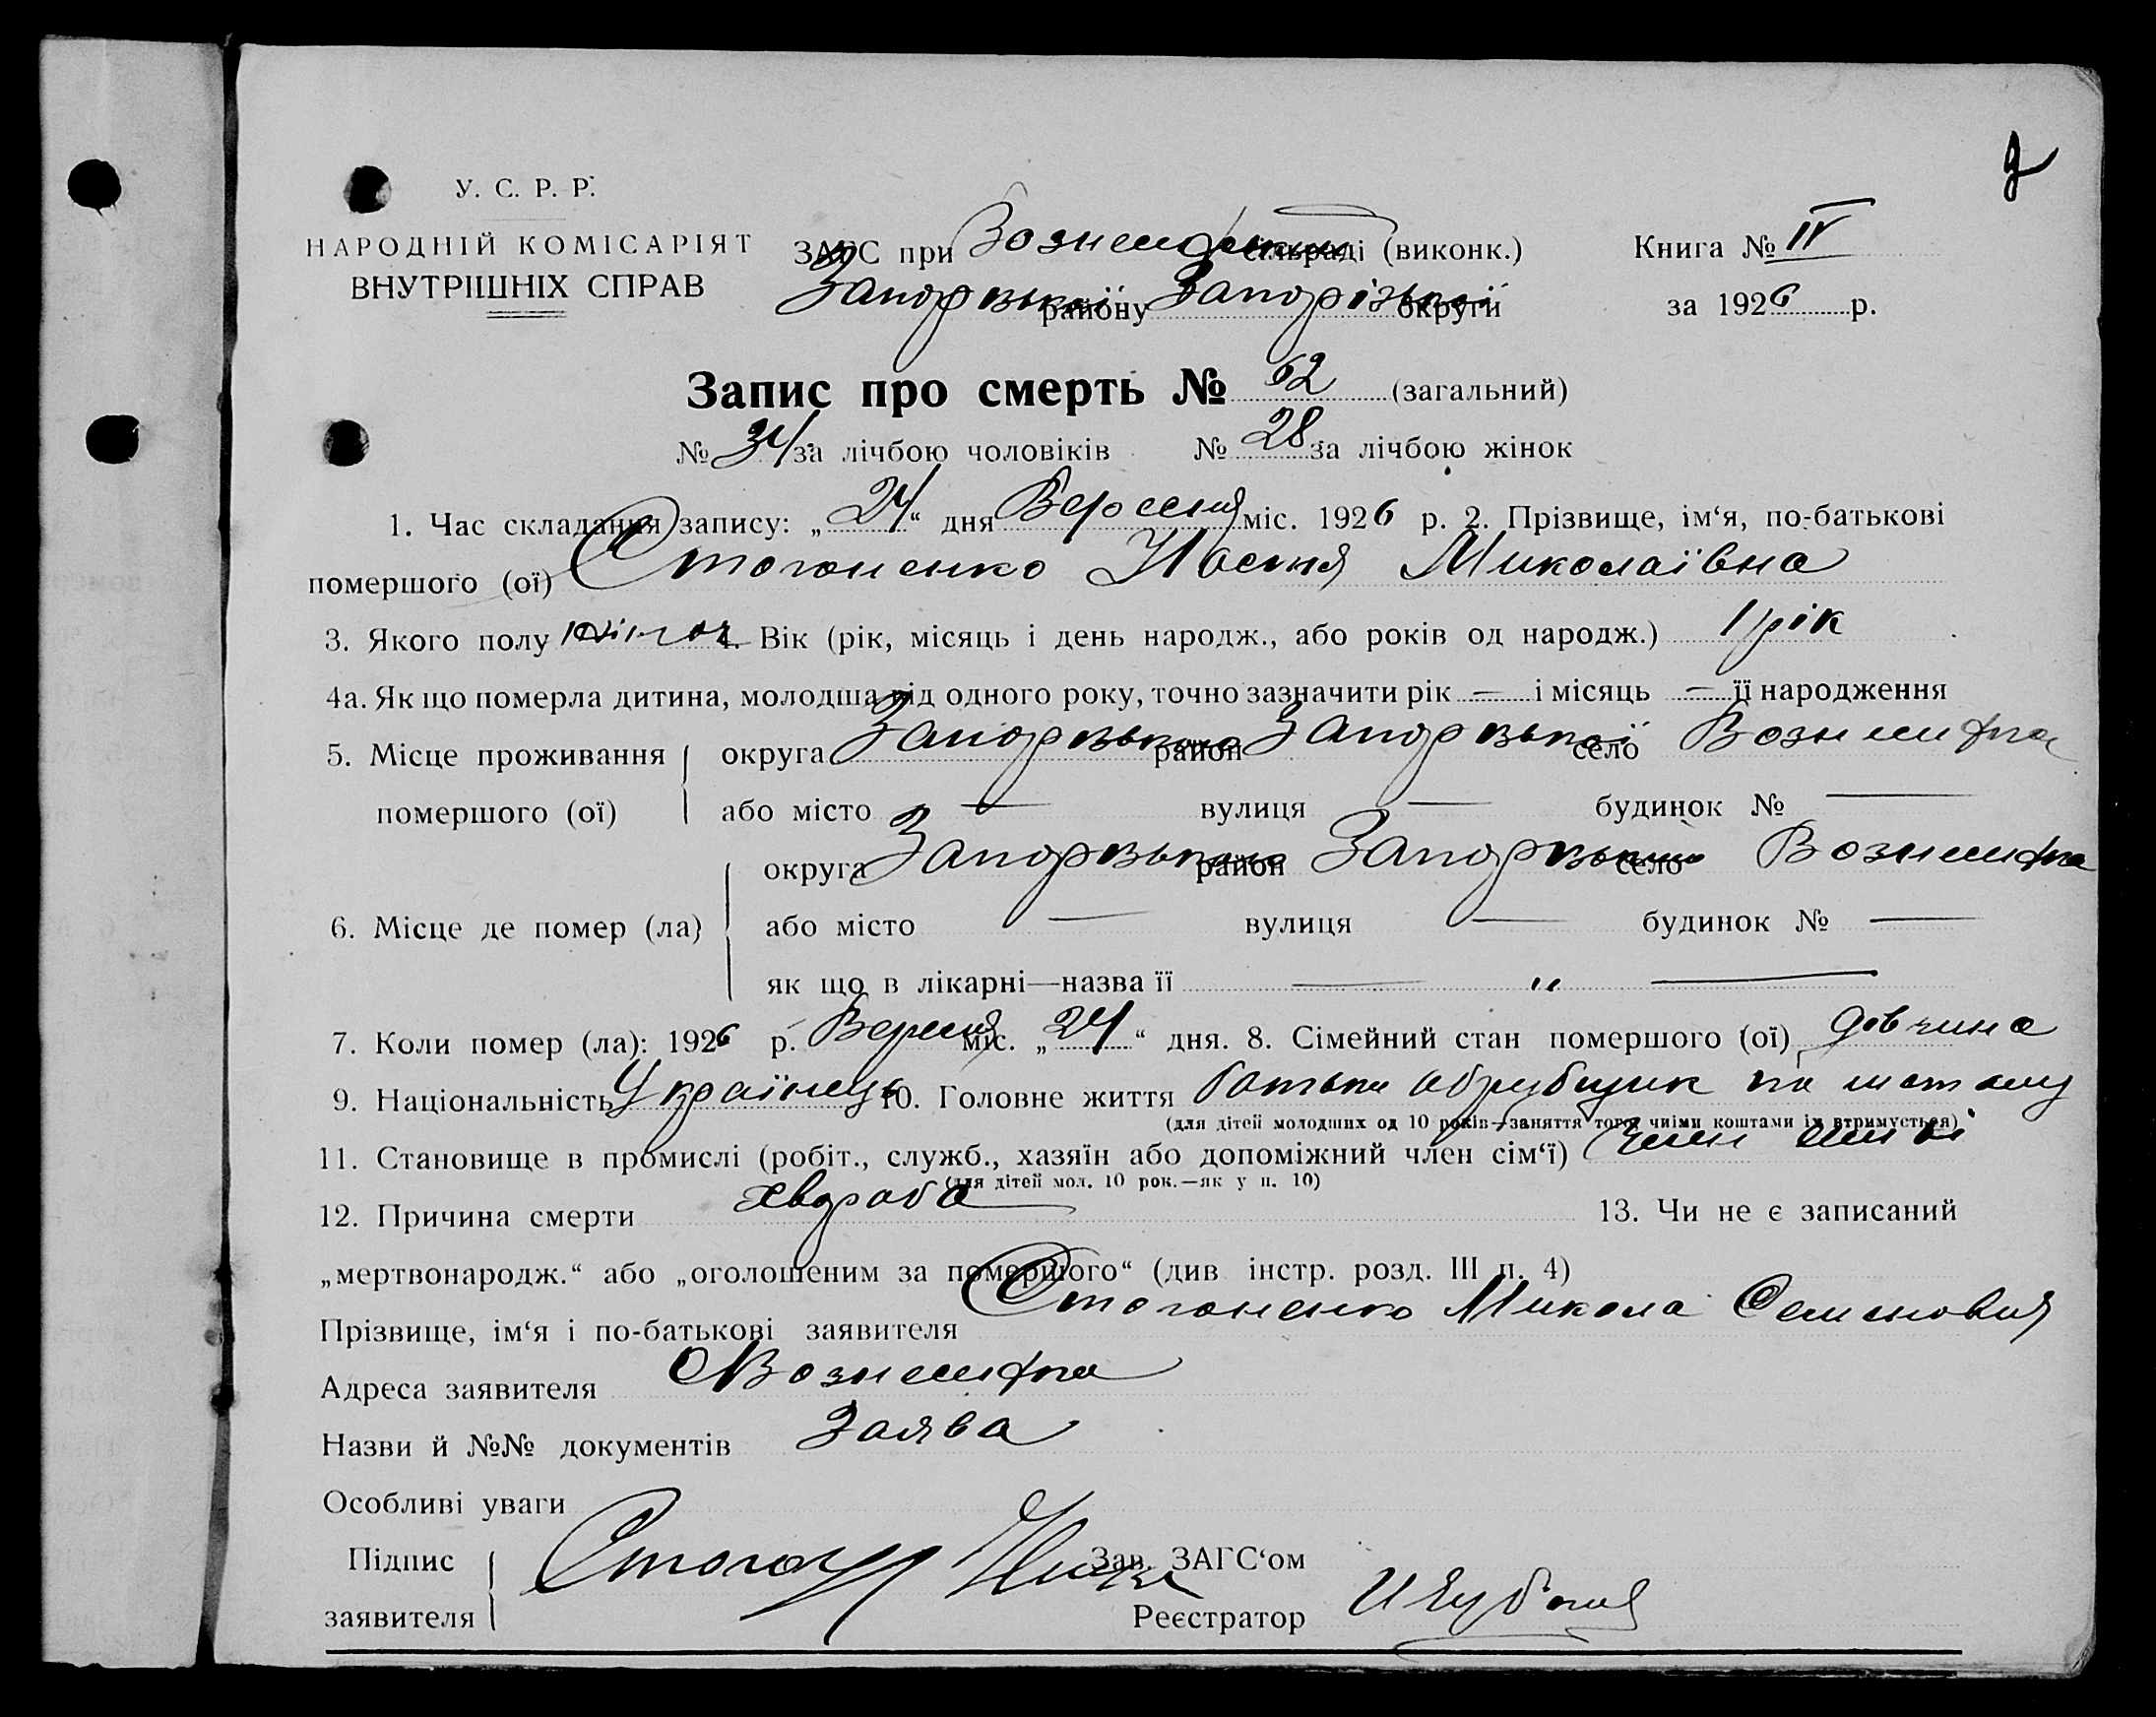 2
У. С. Р. Р.
НАРОДНІЙ КОМІСАРІЯТ
ВНУТРІШНІХ СПРАВ
ЗАГС при сільраді (виконк.)
Запорізької району Запорізької округи
Книга № IV
за 1926 р.
Запис про смерть № 62 (загальний)
№ 34 за лічбою чоловіків № 28 за лічбою жінок
1. Час складання запису: „24“ дня Вересня міс. 1926 р. 2. Прізвище, ім‘я, по-батькові
помершого (ої) Стогоненко Настя Миколаївна
3. Якого полу 4. Вік (рік, місяць і день народж., або років од народж.) 1 рік
4а. Як що померла дитина, молодша від одного року, точно зазначити рік — і місяць — її народження
5. Місце проживання округа район село Вознесенка
помершого (ої) або місто — вулиця — будинок № —
округа район село Вознесенка
6. Місце де помер (ла) або місто — вулиця — будинок № —
як що в лікарні—назва її — „ —
7. Коли помер (ла): 1926 р. Вересня міс. „24“ дня. 8. Сімейний стан помершого (ої) дівчина
9. Національність Українець 10. Головне життя батько
(для дітей молодших од 10 років—заняття того, чиїми коштами їх втримується)
11. Становище в промислі (робіт., служб., хазяїн або допоміжний член сім‘ї) член сімї
(для дітей мол. 10 рок.—як у п. 10)
12. Причина смерти хвороба 13. Чи не є записаний
„мертвонародж.“ або „оголошеним за помершого“ (див інстр. розд. III п. 4)
Прізвище, ім‘я і по-батькові заявителя Стогоненко Микола Семенович
Адреса заявителя Вознесенка
Назви й №№ документів Заява
Особливі уваги
Підпис Зав. ЗАГС‘ом
заявителя Реєстратор